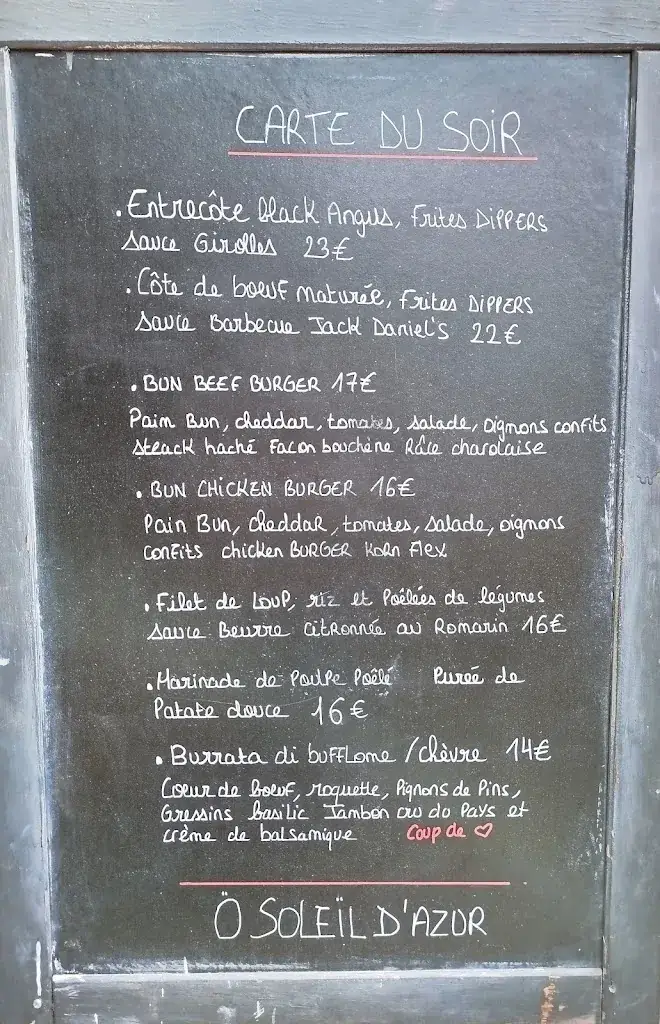 CARTE DU SOIR
. Entrecôte black Angus, Frites DIPPERS
Sauce Girolles 23€
. Côte de boeuf maturée, Frites DIPPERS
Sauce Barbecue Jack Daniel's 22€
. BUN BEEF BURGER 17€
Pain Bun, cheddar, tomates, salade, oignons confits
steack haché Facon bouchène Râce charolaise
. BUN CHICKEN BURGER 16€
Pain Bun, cheddar, tomates, salade, oignons
confits chicken BURGER Korn Flex
. Filet de Loup, riz et Poêlées de légumes
sauce Beurre citronnée au Romarin 16€
. Marinade de Poulpe Poêlé Purée de
Patate douce 16€
. Burrata di buffLome / chèvre 14€
Coeur de boeuf, roquette, Pignons de Pins,
Gressins basilic Jambon cru du Pays et
crème de balsamique Coup de ♡
Ö SOLEÏL D'AZUR